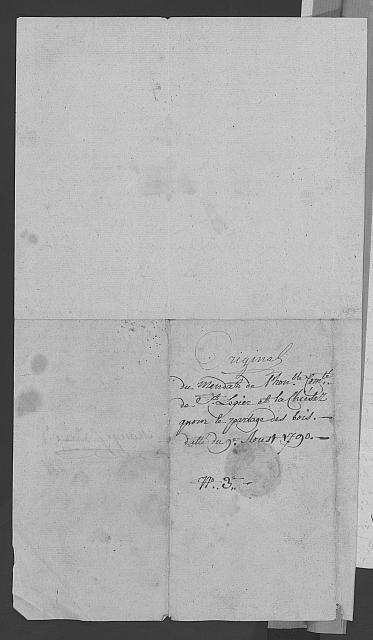 Original
du Mandat de l'hon.ble Com.té
de St. Legier et la Chiésaz
pour le partage des bois. —
datté du 9e. Aoust 1790. —
No. 3. —